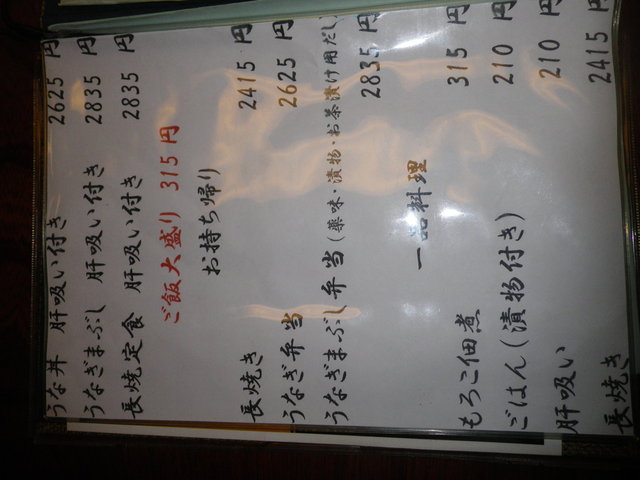 うな丼 肝吸い付き 2625 円
うなぎまぶし 肝吸い付き 2835 円
長焼定食 肝吸い付き 2835 円
ご飯大盛り 315 円
お持ち帰り
長焼き 2415 円
うなぎ弁当 2625 円
うなぎまぶし弁当(薬味・漬物・お茶漬け用だし) 2835 円
一品料理
もろこ佃煮 315 円
ごはん(漬物付き) 210 円
肝吸い 210 円
長焼き 2415 円